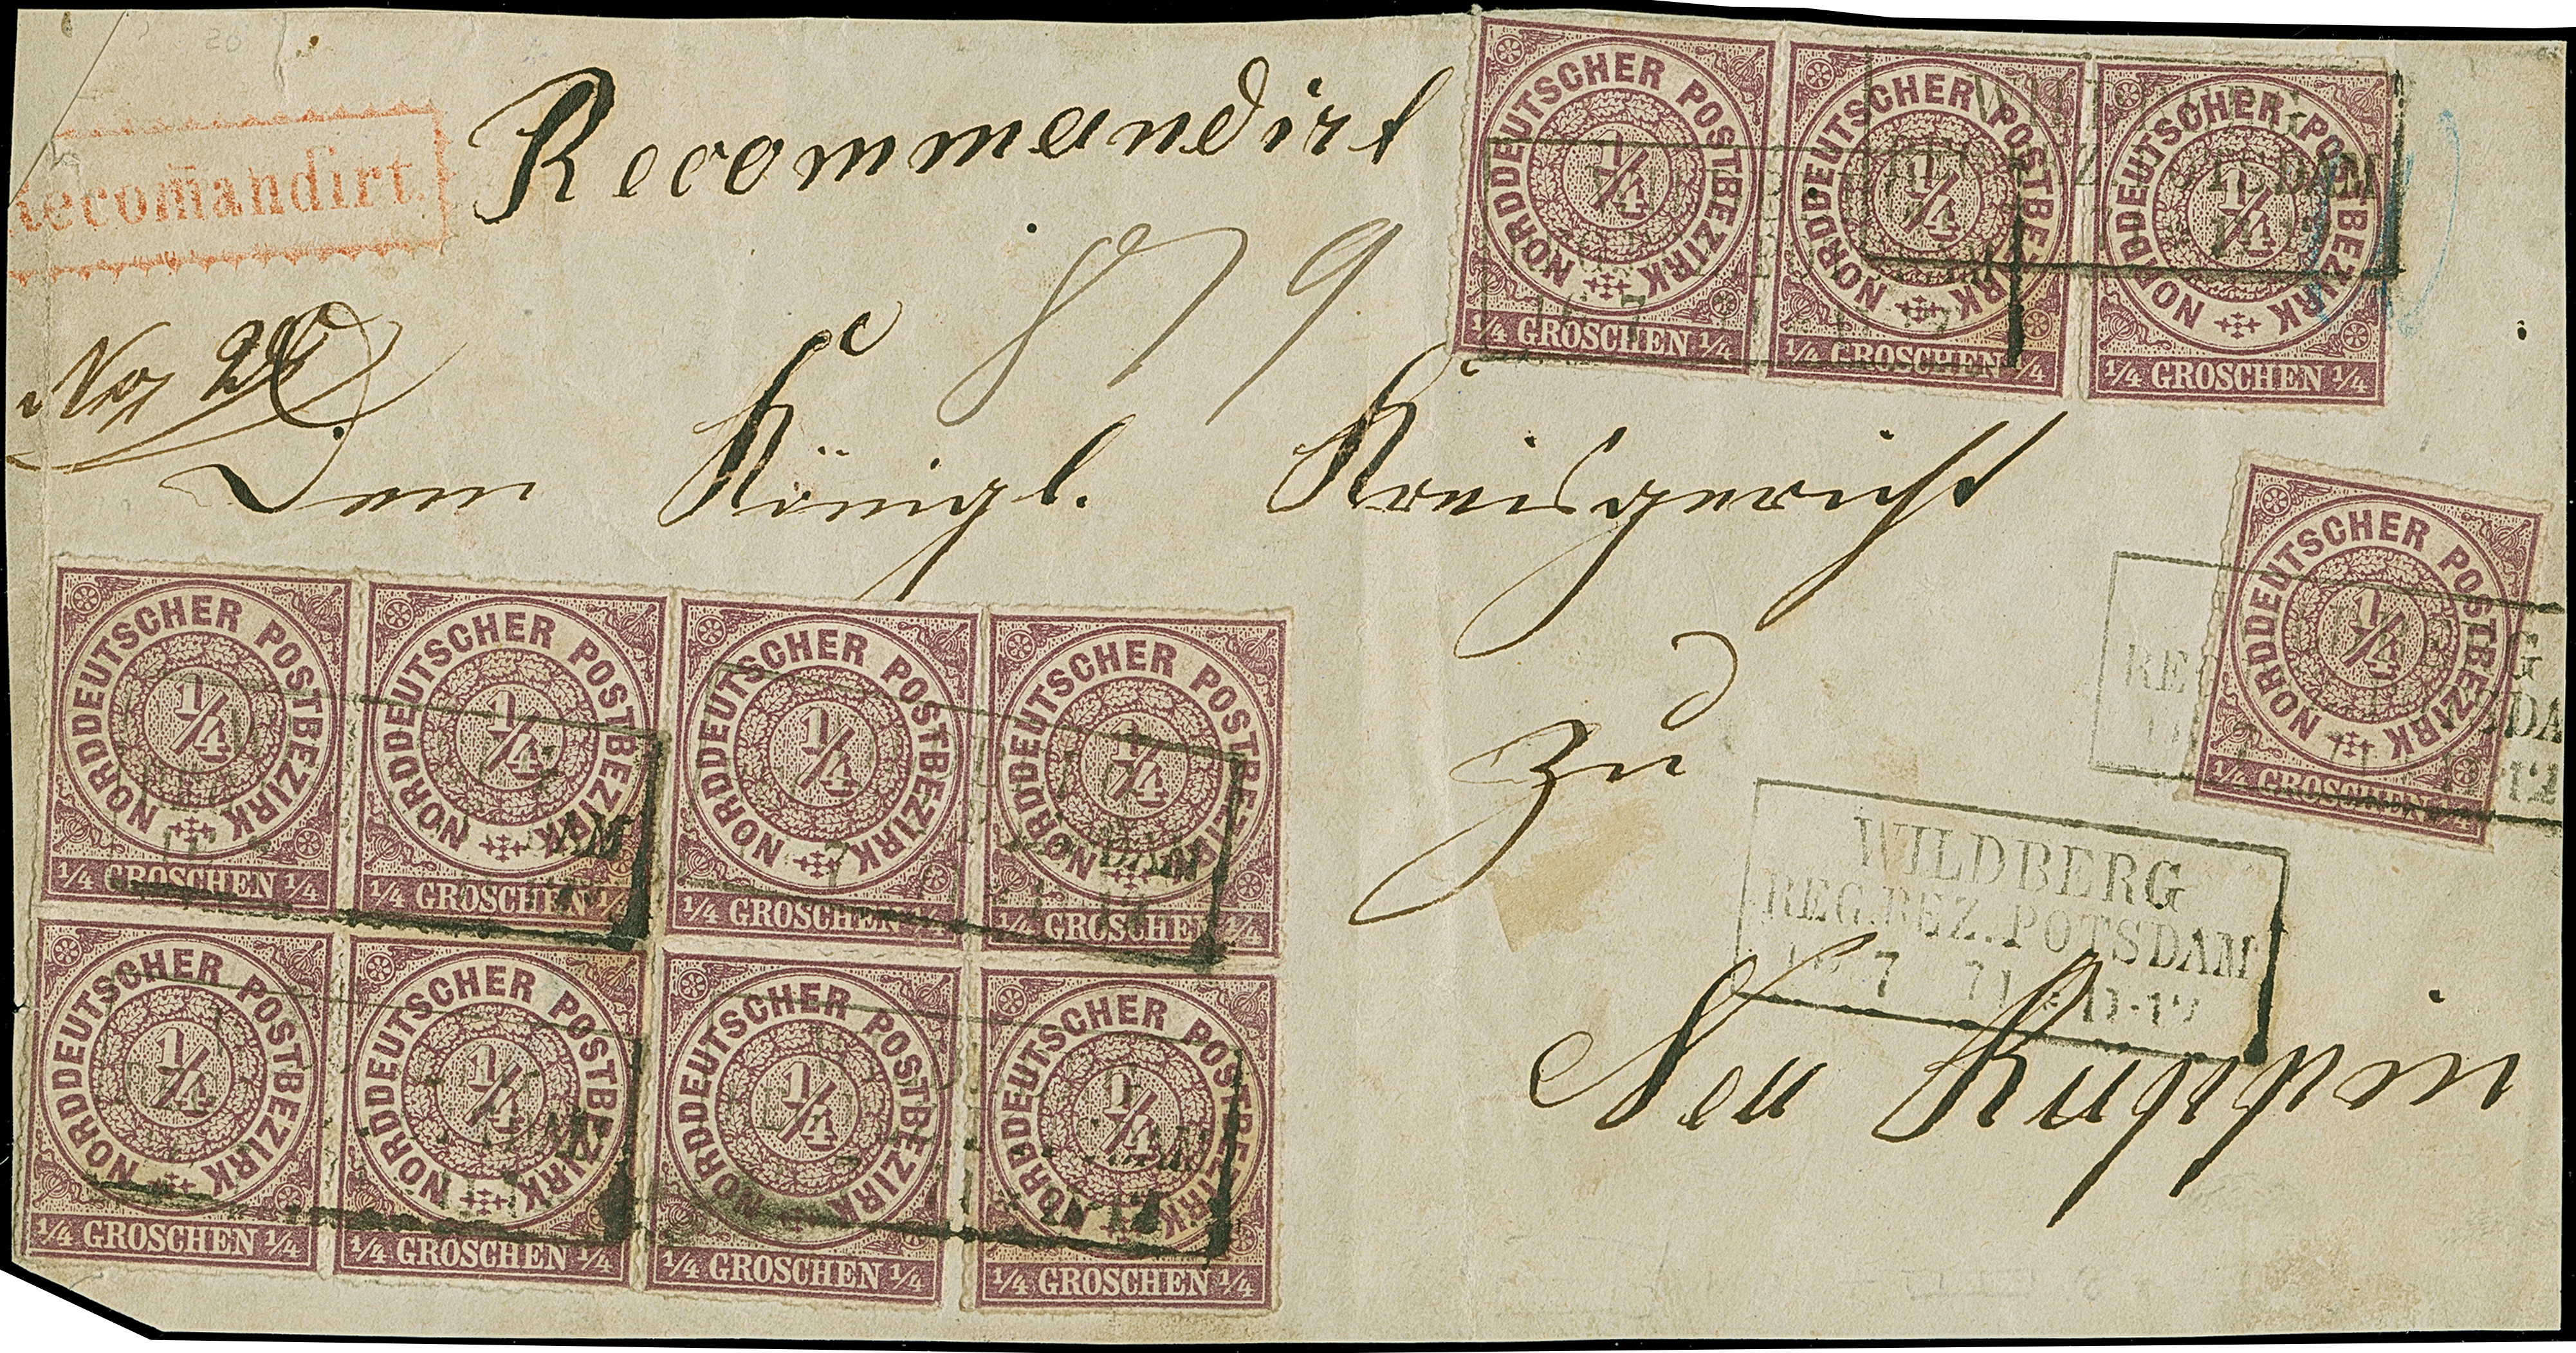 Recommandirt
Recom̄andirt.
No 28
879
Dem Königl. Kreisgericht
zu
Neu Ruppin
NORDDEUTSCHER POSTBEZIRK
1/4
1/4 GROSCHEN 1/4
NORDDEUTSCHER POSTBEZIRK
1/4
1/4 GROSCHEN 1/4
NORDDEUTSCHER POSTBEZIRK
1/4
1/4 GROSCHEN 1/4
NORDDEUTSCHER POSTBEZIRK
1/4
1/4 GROSCHEN 1/4
WILDBERG
REG.BEZ.POTSDAM
16 7 71 * 11-12
NORDDEUTSCHER POSTBEZIRK
1/4
1/4 GROSCHEN 1/4
NORDDEUTSCHER POSTBEZIRK
1/4
1/4 GROSCHEN 1/4
NORDDEUTSCHER POSTBEZIRK
1/4
1/4 GROSCHEN 1/4
NORDDEUTSCHER POSTBEZIRK
1/4
1/4 GROSCHEN 1/4
NORDDEUTSCHER POSTBEZIRK
1/4
1/4 GROSCHEN 1/4
NORDDEUTSCHER POSTBEZIRK
1/4
1/4 GROSCHEN 1/4
NORDDEUTSCHER POSTBEZIRK
1/4
1/4 GROSCHEN 1/4
NORDDEUTSCHER POSTBEZIRK
1/4
1/4 GROSCHEN 1/4